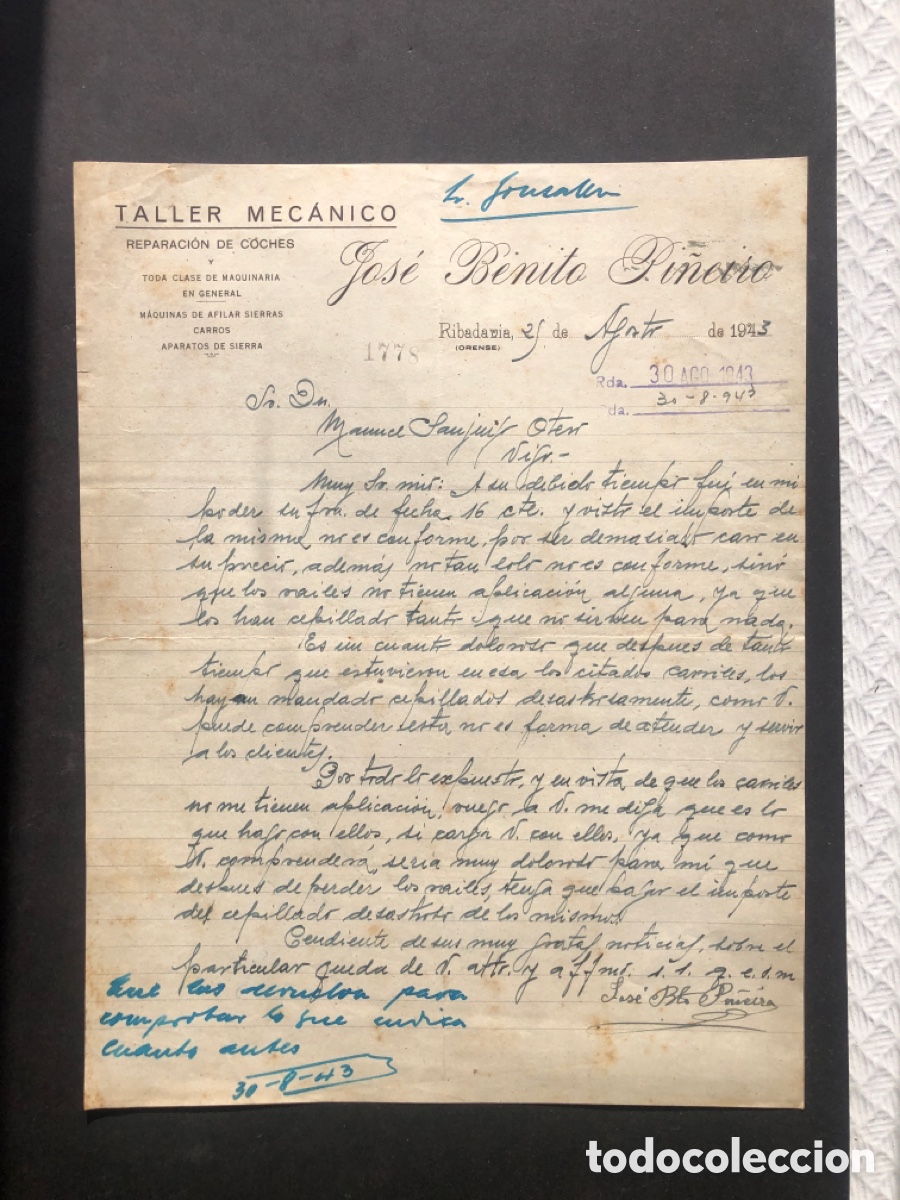 Sr. Gonsales
TALLER MECÁNICO
REPARACIÓN DE COCHES
Y
TODA CLASE DE MAQUINARIA
EN GENERAL
MÁQUINAS DE AFILAR SIERRAS
CARROS
APARATOS DE SIERRA
José Benito Piñeiro
Ribadavia, 25 de Agosto de 1943
(ORENSE)
1778
Rda. 30 AGO 1943
da. 30-8-943
Sr. Dn.
Manuel Sanjuis Otero
Vigo.-
Muy Sr. mio: A su debido tiempo fué en mi
poder su fra. de fecha 16 cte. y visto el importe de
la misma no es conforme, por ser demasiado caro en
su precio, además no tan solo no es conforme, sinó
que los railes no tienen aplicación alguna, ya que
los han cepillado tanto que no sirven para nada.
Es un cuanto doloroso que despues de tanto
tiempo que estuvieron en esa los citados carriles, los
hayan mandado cepillados desastrosamente, como V.
puede comprender esta no es forma de atender y servir
a los clientes.
Por todo lo expuesto, y en vista de que los carriles
no me tienen aplicación, ruego a V. me diga que es lo
que hago con ellos, si carga V. con ellos, ya que como
V. comprenderá, seria muy doloroso para mí que
despues de perder los railes, tenga que pagar el importe
del cepillado desastroso de los mismos
Pendiente de sus muy gratas noticias, sobre el
particular queda de V. attо. y affmo. s. s. q. e. s. m
José Bto Piñeiro
Que los devuelva para
comprobar lo que indica
cuanto antes
30-8-43
todocoleccion